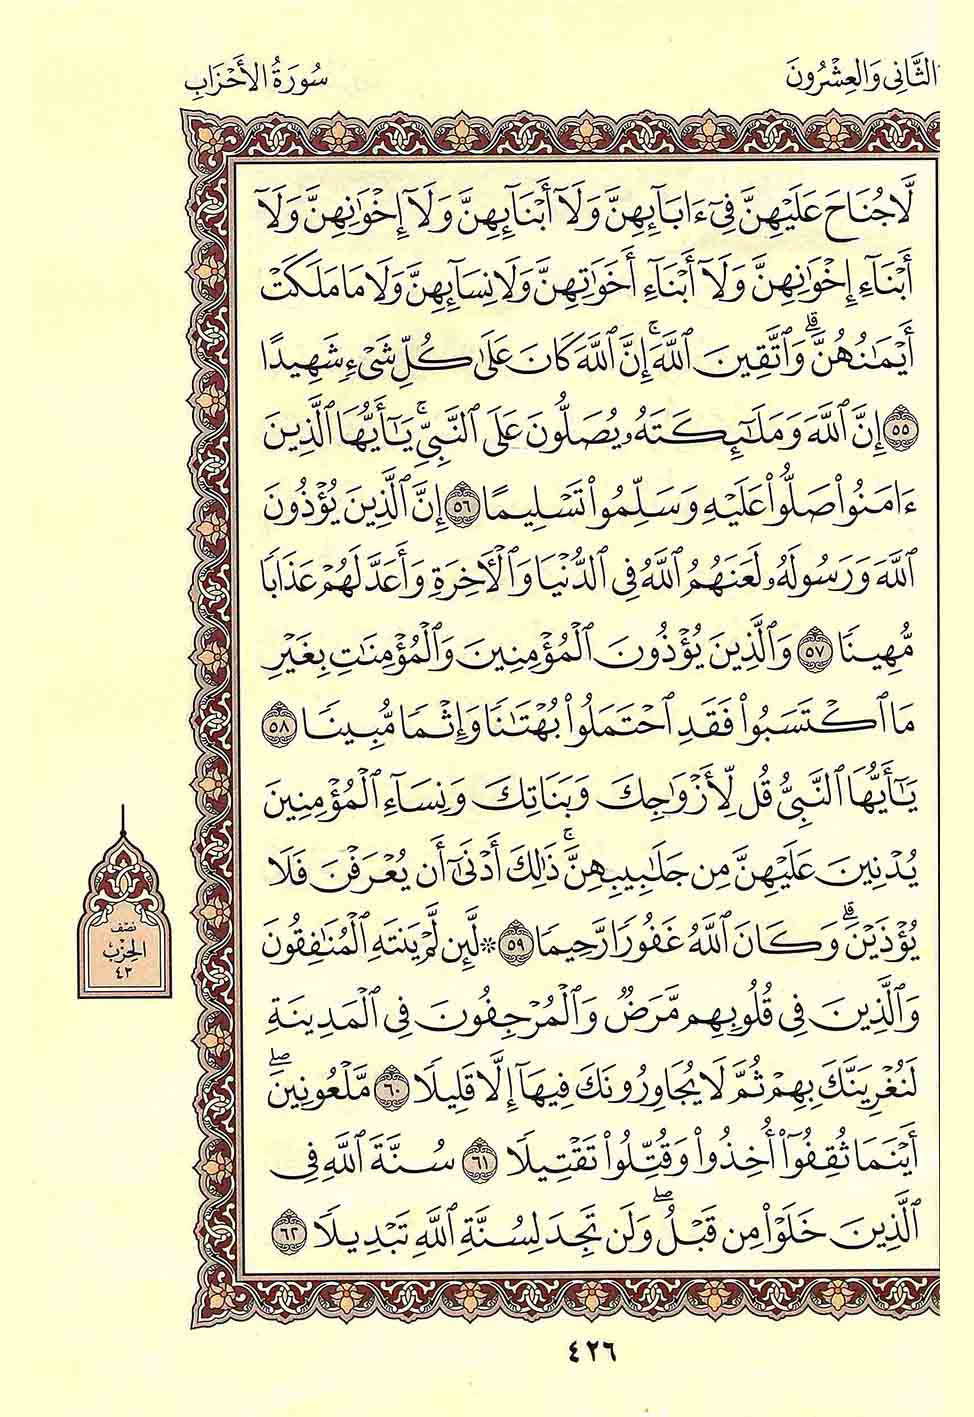 الثَّانِي وَالْعِشْرُونَ
سُورَةُ الأَحْزَابِ
لَّا جُنَاحَ عَلَيْهِنَّ فِىٓ ءَابَآئِهِنَّ وَلَآ أَبْنَآئِهِنَّ وَلَآ إِخْوَٰنِهِنَّ وَلَآ
أَبْنَآءِ إِخْوَٰنِهِنَّ وَلَآ أَبْنَآءِ أَخَوَٰتِهِنَّ وَلَا نِسَآئِهِنَّ وَلَا مَا مَلَكَتْ
أَيْمَٰنُهُنَّ ۗ وَٱتَّقِينَ ٱللَّهَ ۚ إِنَّ ٱللَّهَ كَانَ عَلَىٰ كُلِّ شَىْءٍ شَهِيدًا
٥٥ إِنَّ ٱللَّهَ وَمَلَٰٓئِكَتَهُۥ يُصَلُّونَ عَلَى ٱلنَّبِىِّ ۚ يَٰٓأَيُّهَا ٱلَّذِينَ
ءَامَنُوا۟ صَلُّوا۟ عَلَيْهِ وَسَلِّمُوا۟ تَسْلِيمًا ٥٦ إِنَّ ٱلَّذِينَ يُؤْذُونَ
ٱللَّهَ وَرَسُولَهُۥ لَعَنَهُمُ ٱللَّهُ فِى ٱلدُّنْيَا وَٱلْءَاخِرَةِ وَأَعَدَّ لَهُمْ عَذَابًا
مُّهِينًا ٥٧ وَٱلَّذِينَ يُؤْذُونَ ٱلْمُؤْمِنِينَ وَٱلْمُؤْمِنَٰتِ بِغَيْرِ
مَا ٱكْتَسَبُوا۟ فَقَدِ ٱحْتَمَلُوا۟ بُهْتَٰنًا وَإِثْمًا مُّبِينًا ٥٨
يَٰٓأَيُّهَا ٱلنَّبِىُّ قُل لِّأَزْوَٰجِكَ وَبَنَاتِكَ وَنِسَآءِ ٱلْمُؤْمِنِينَ
يُدْنِينَ عَلَيْهِنَّ مِن جَلَٰبِيبِهِنَّ ۚ ذَٰلِكَ أَدْنَىٰٓ أَن يُعْرَفْنَ فَلَا
يُؤْذَيْنَ ۗ وَكَانَ ٱللَّهُ غَفُورًا رَّحِيمًا ٥٩ ۞ لَّئِن لَّمْ يَنتَهِ ٱلْمُنَٰفِقُونَ
وَٱلَّذِينَ فِى قُلُوبِهِم مَّرَضٌ وَٱلْمُرْجِفُونَ فِى ٱلْمَدِينَةِ
لَنُغْرِيَنَّكَ بِهِمْ ثُمَّ لَا يُجَاوِرُونَكَ فِيهَآ إِلَّا قَلِيلًا ٦٠ مَّلْعُونِينَ ۖ
أَيْنَمَا ثُقِفُوٓا۟ أُخِذُوا۟ وَقُتِّلُوا۟ تَقْتِيلًا ٦١ سُنَّةَ ٱللَّهِ فِى
ٱلَّذِينَ خَلَوْا۟ مِن قَبْلُ ۖ وَلَن تَجِدَ لِسُنَّةِ ٱللَّهِ تَبْدِيلًا ٦٢
نصف
الحِزْب
٤٣
٤٢٦